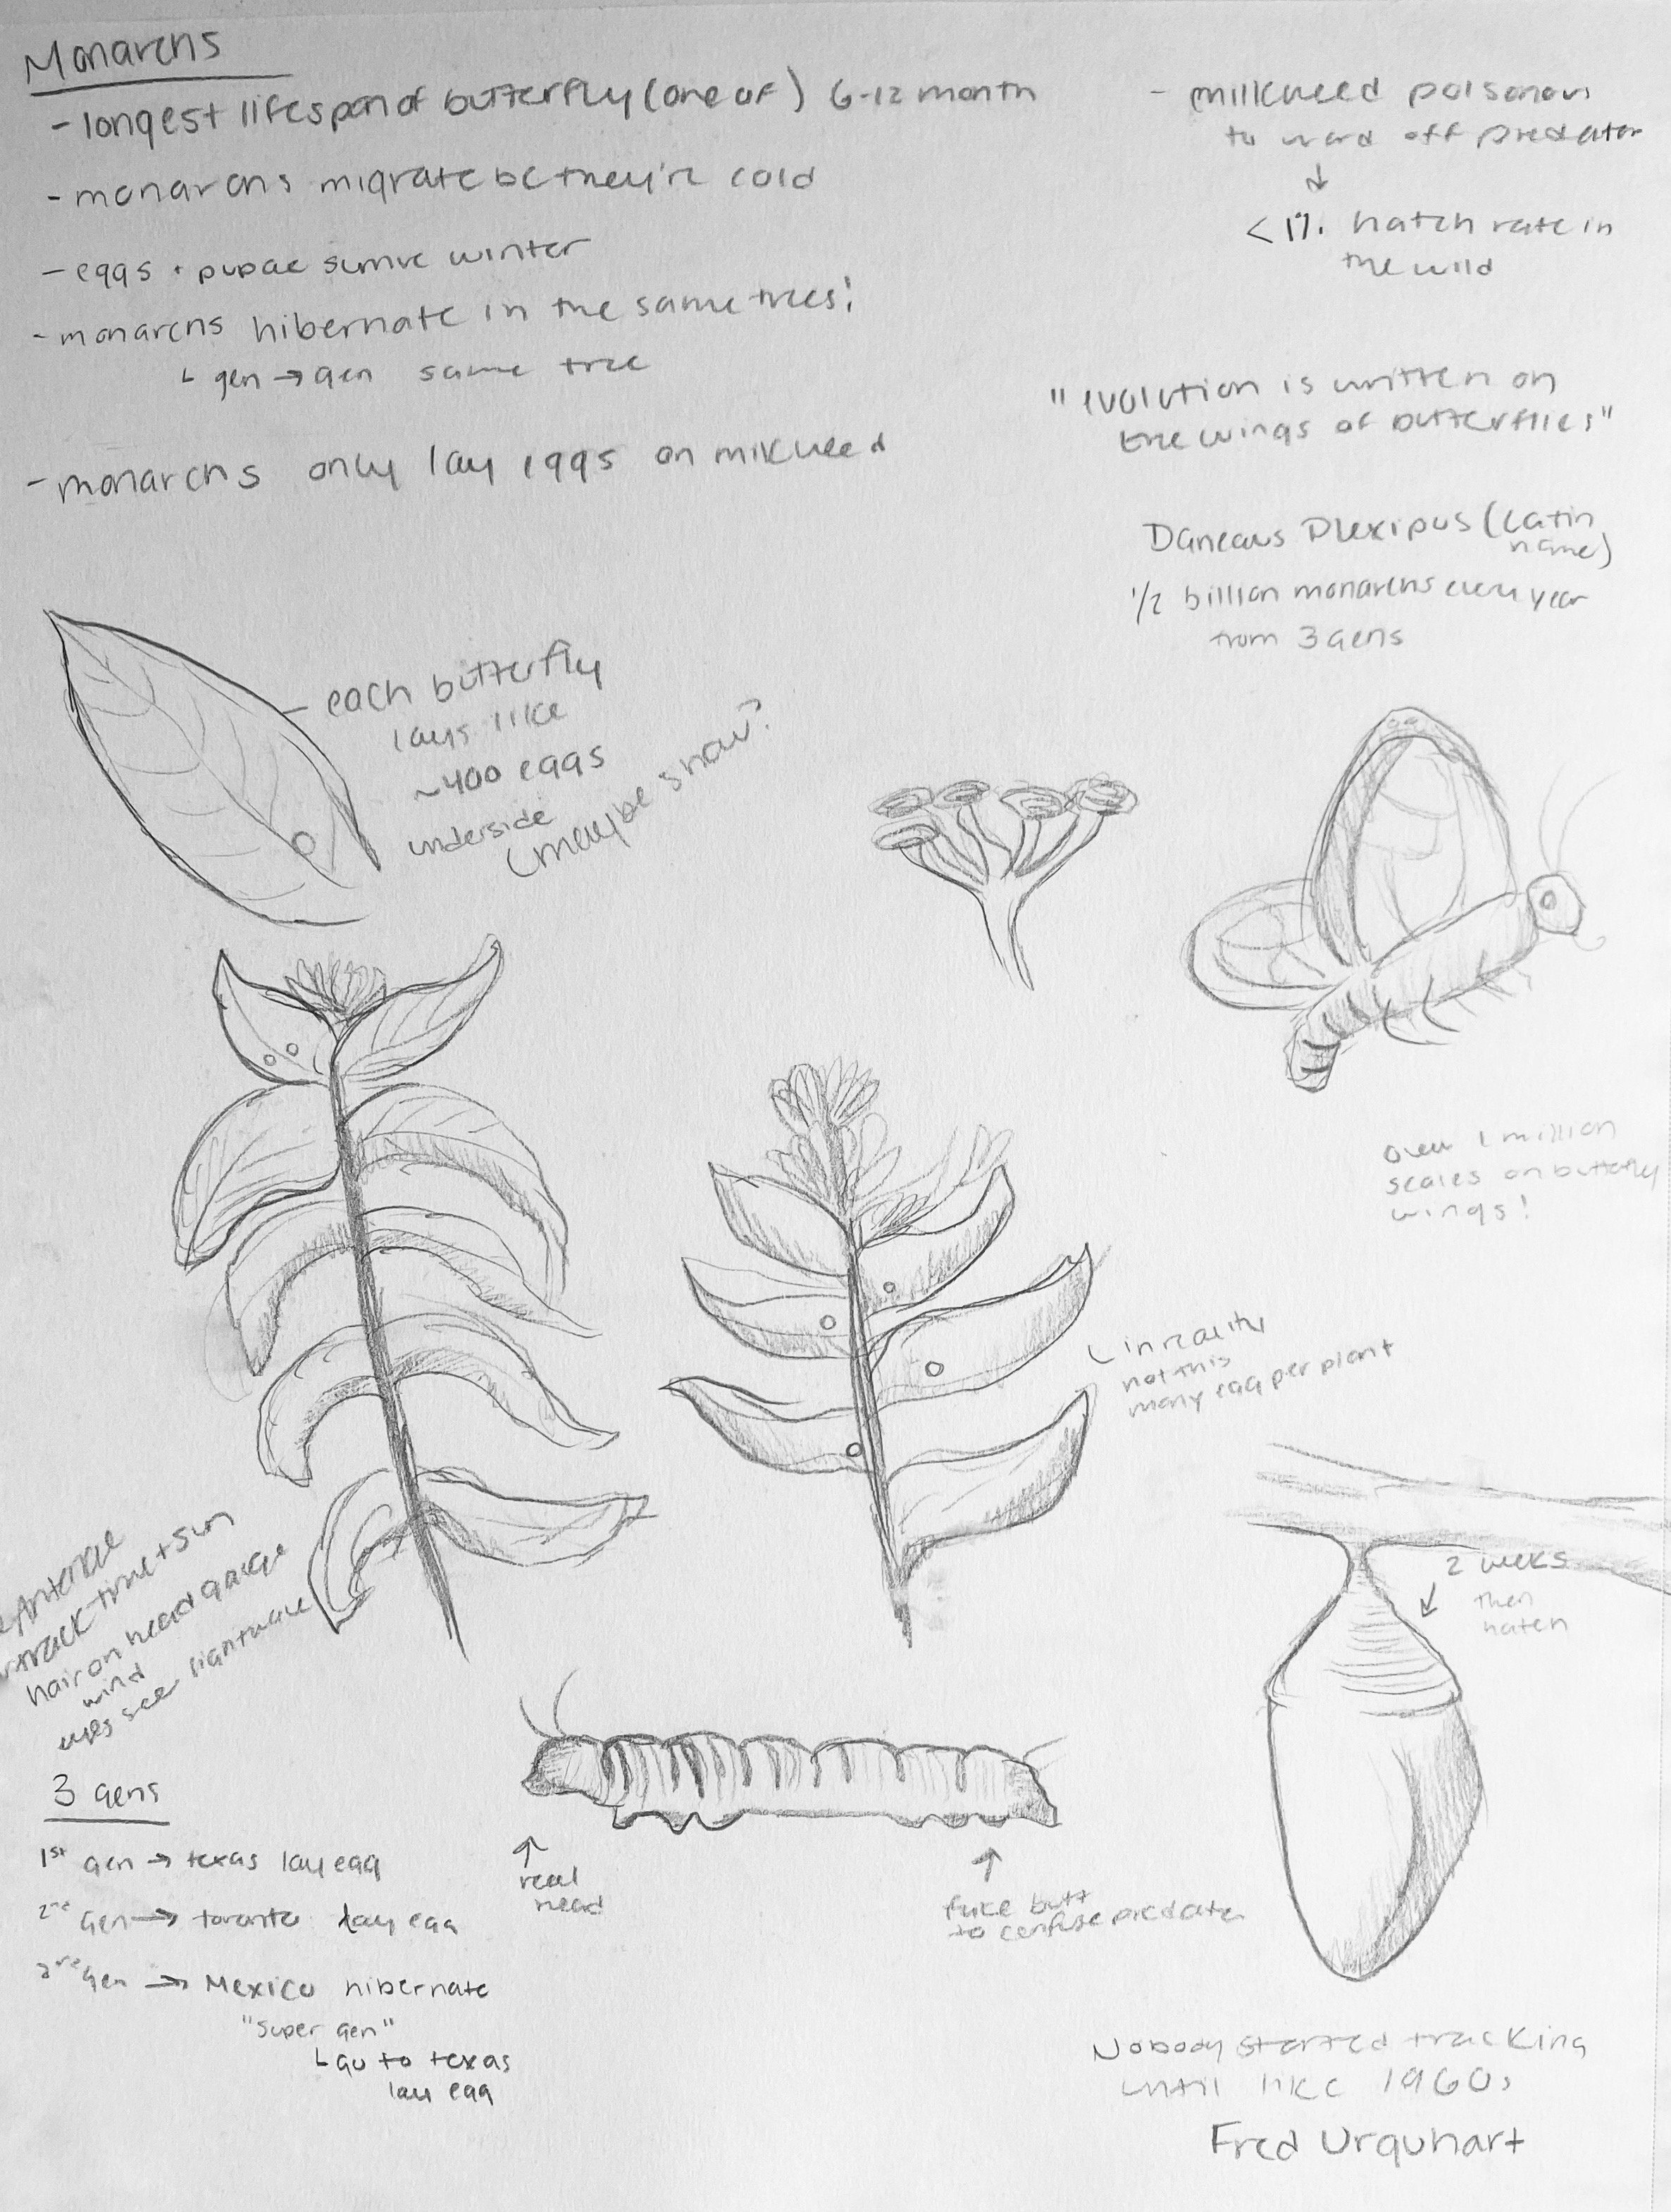 Monarchs
- longest lifespan of butterfly (one of) 6-12 month
- monarchs migrate bc they're cold
- eggs + pupae survive winter
- monarchs hibernate in the same trees!
└ gen → gen same tree
- monarchs only lay eggs on milkweed
- milkweed poisonous
to ward off predator
↓
<1% hatch rate in
the wild
"evolution is written on
the wings of butterflies"
Daneaus Plexipus (Latin
name)
1/2 billion monarchs every year
from 3 gens
each butterfly
lays like
~400 eggs
underside
(maybe show?
over 1 million
scales on butterfly
wings!
in reality
not this
many egg per plant
2 weeks
then
hatch
Antennae
track time + sun
hair on head gauge
wind
eyes see light wave
real
head
fake butt
to confuse predator
3 gens
1st gen → texas lay egg
2nd gen → toronto lay egg
3rd gen → Mexico hibernate
"super gen"
└ go to texas
lay egg
Nobody started tracking
until like 1960s
Fred Urquhart